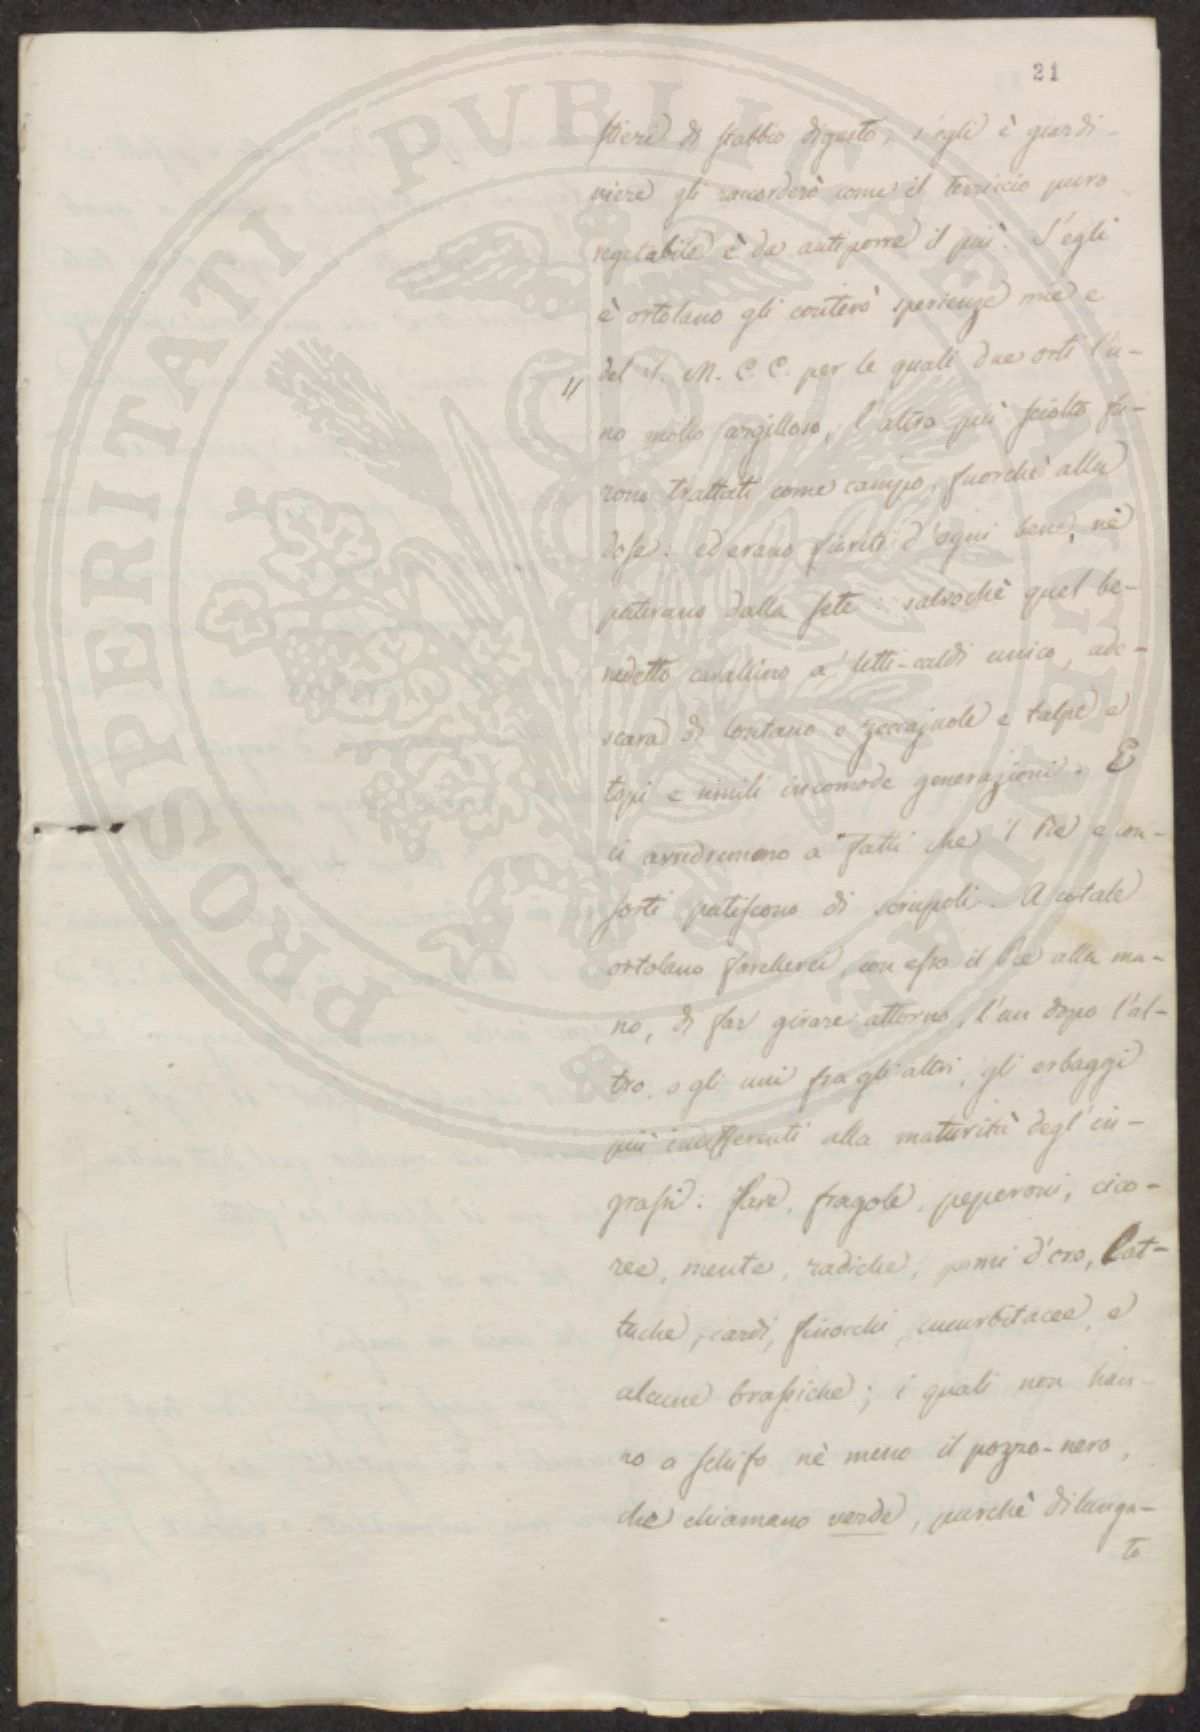 21
stieri di stabbio digesto; s'egli è giardi-
niere gli raccorderò come il terriccio puro
vegetabile è da antiporre il più. S'egli
è ortolano gli conterò sperienze mie e
del S. M. C. C. per le quali due orti l'u-
"
no molto argilloso, l'altro più sciolto fu-
rono trattati come campo, fuorchè alla
dose: ed erano fioriti d'ogni bene, nè
pativano dalla sete: salvochè quel be-
nedetto cavallino a' letti-caldi unico, ade-
scava di lontano e zeccajuole e talpe e
topi e simili incomode generazioni. E
ci avvedremmo a' fatti che 'l Re e con-
sorti patiscono di scrupoli. A cotale
ortolano favellerei, con esso il Re alla ma-
no, di far girare attorno, l'un dopo l'al-
tro, o gli uni fra gli altri, gli erbaggi
più indifferenti alla maturità degl'in-
grassi: fave, fragole, peperoni, cico-
ree, mente, radiche, pomi d'oro, Lat-
tuche, cardi, finocchi, cucurbitacee, e
alcune brassiche; i quali non han-
no a schifo nè meno il pozzo-nero,
che chiamano verde, purchè dilunga-
to
PROSPERITATI PVBLICAE AVGENDAE